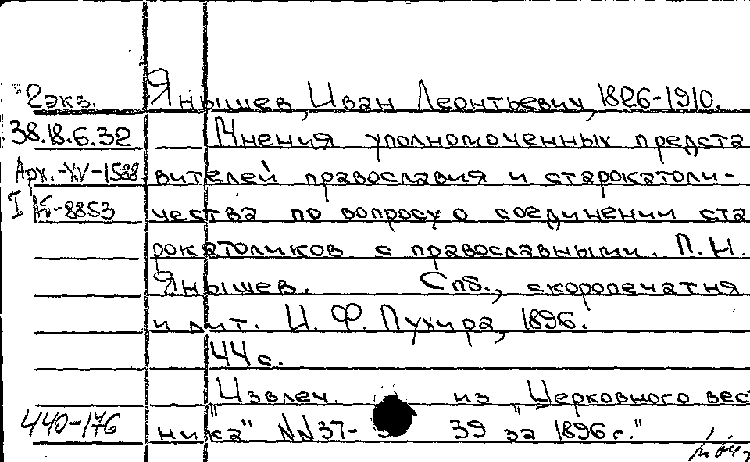 2экз. Янышев, Иван Леонтьевич, 1826-1910.
38.18.6.32 Мнения уполномоченных предста
Арх.-XV-1588 вителей православия и старокатоли-
I К-8853 чества по вопросу о соединении ста
рокатоликов с православными. П.Н.
Янышев. Спб., скоропечатня
и лит. И. Ф. Пухира, 1896.
44 с.
Извлеч. из "Церковного вес
440-176 ника" NN37- 39 за 1896 г."